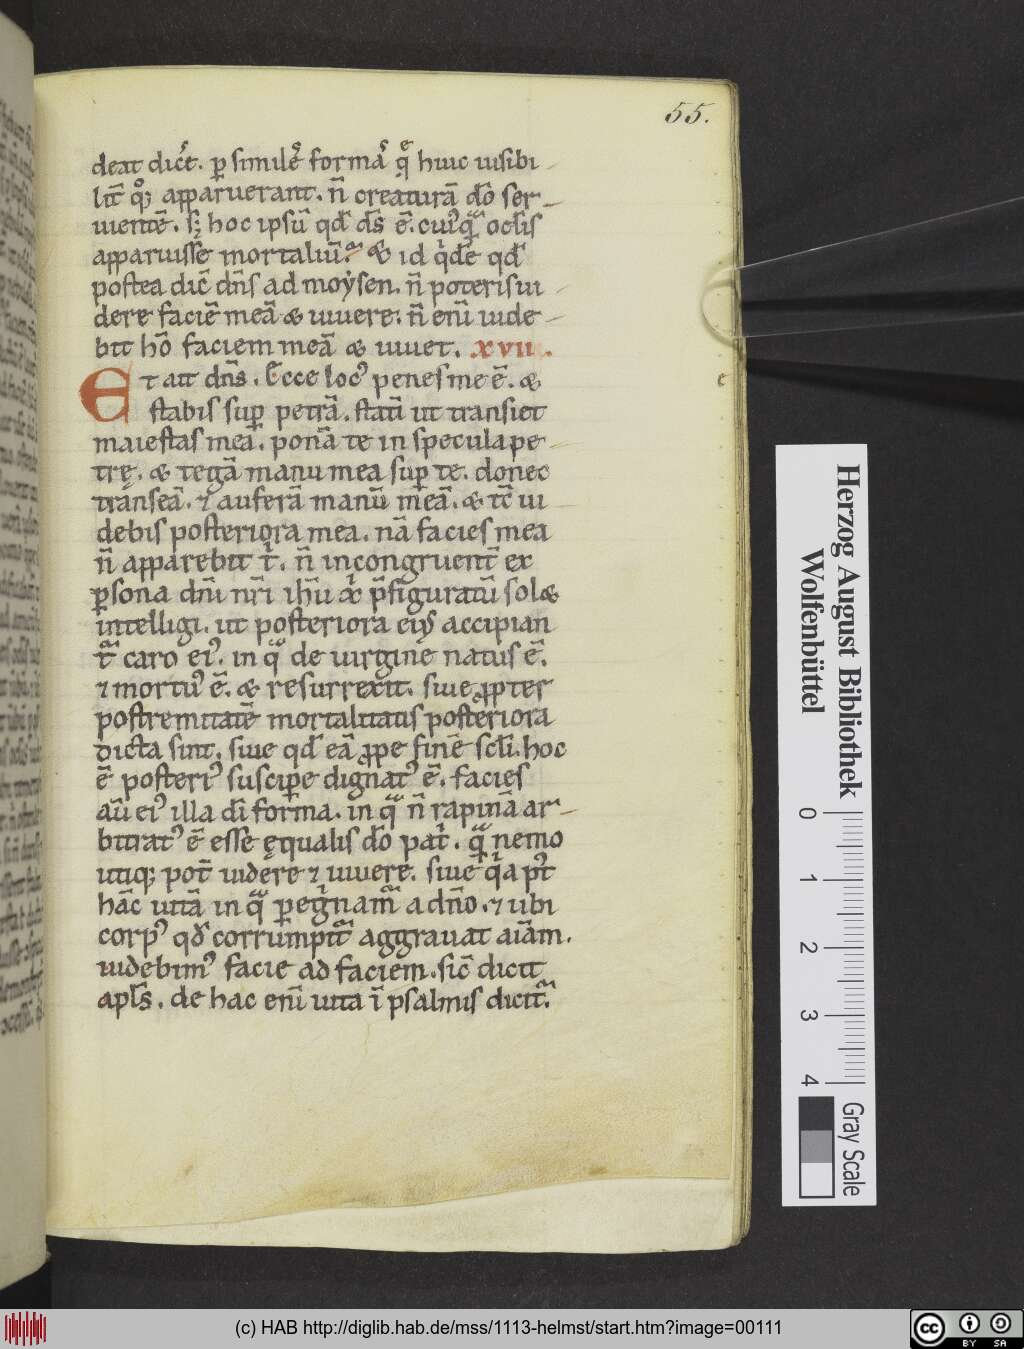 55.
deat dicē. ꝑ similē formā q̄ huic uisibi-
lit̄ qͦꝫ apparuerant. n̄ creaturā dō ser-
uientē. sꝫ hoc ipsū qd̄ ds̄ ē. cuiꝰq̄ oclis
apparuisse mortaliū. & id q̇dē qd̄
postea dic̄ dn̄s ad moẏsen. n̄ poteris ui-
dere faciē meā & uiuere. n̄ enī uide-
bit hō faciem meā & uiuet. xvii.
Et ait dn̄s. Ecce locꝰ penes me ē. &
stabis suꝑ petrā. statī ut transiet
maiestas mea. ponā te in specula pe-
trę. & tegā manu mea suꝑ te. donec
transeā. ⁊ auferā manū meā. & tc̄ ui
debis posteriora mea. nā facies mea
n̄ apparebit t̄. n̄ incongruent̄ ex
ꝑsona dn̄i nr̄i ihū xp̄i p̄figuratū sol&
intelligi. ut posteriora eiꝰ accipian
t̄ caro eiꝰ. in q̄ de uirgine natus ē.
⁊ mortuꝰ ē. & resurrexit. siue ꝓpter
postremitatē mortalitatis posteriora
dicta sint. siue qd̄ eā ꝓpe finē scl̄i. hoc
ē posteriꝰ susciꝑe dignatꝰ ē. facies
aū eiꝰ illa dī forma. in q̄ n̄ rapinā ar-
bitratꝰ ē esse ęqualis dō pat̄. q̄ nemo
utiqꝫ pot̄ uidere ⁊ uiuere. siue q̇a pꝰt
hāc uitā in q̄ ꝑeg̓nam̄ a dn̄o. ⁊ ubi
corpꝰ qd̄ corrumpit̄ aggrauat aīam.
uidebimꝰ facie ad faciem. sic̄ dicit
apl̄s. de hac enī uita ī psalmis dicit̄.
c
Herzog August Bibliothek
Wolfenbüttel
0 1 2 3 4
Gray Scale
(c) HAB http://diglib.hab.de/mss/1113-helmst/start.htm?image=00111
cc BY SA